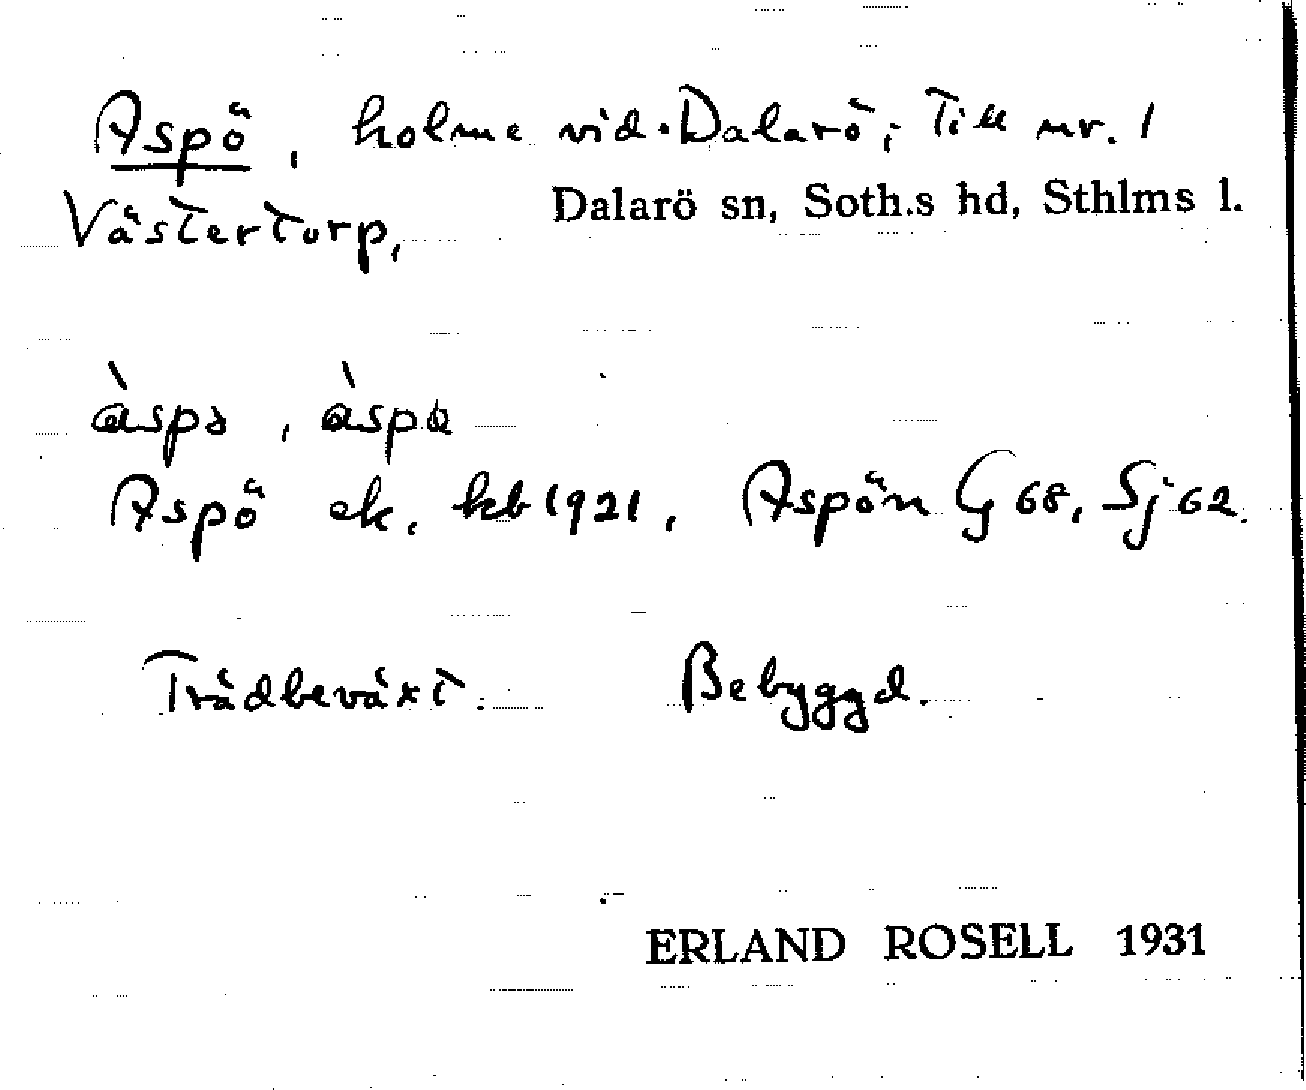 Aspö, holme vid Dalarö; Till nr. 1
Västertorp, Dalarö sn, Soth.s hd, Sthlms l.
àspə, àspa
Aspö ek. kb 1921, Aspön G 68, Sj 62.
Trädbeväxt. Bebyggd.
ERLAND ROSELL 1931